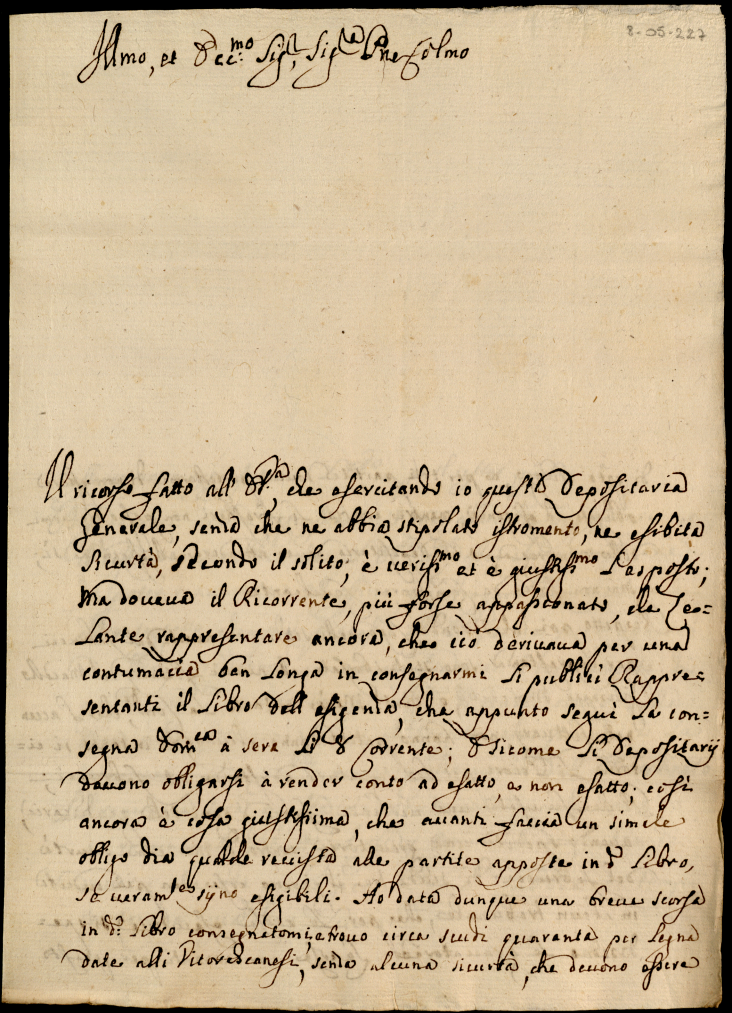 8-05-227
Illmo, et Ecc:mo Sigr, Sigr Pne Colmo
Il ricorso fatto all' che esercitando io questa Depositaria
Generale, senza che ne abbia stipolato istromento, ne esibita
Sicurtà, secondo il solito, è verissmo et è giustissmo l'esposto;
Ma doveva il Ricorrente, più forse appassionato, che Ze=
lante rappresentare ancora, che ciò derivava per una
contumacia ben longa in consegnarmi li publici Rappre=
sentanti il Libro dell'esigenza, che appunto seguì la con=
segna Domca à sera li 8 Corrente; E sicome li Depositarij
devono obligarsi à render conto ad esatto, e non esatto, così
ancora è cosa giustissima, che avanti faccia un simile
obligo dia qualche revista alle partite apposte in d.o Libro,
se veramte sijno esigibili. Ho data dunque una breve scorsa
in d.o Libro consegnatomi, e trovo circa scudi quaranta per legna
date alli Vitorchianesi, senza alcuna sicurtà, che devono essere